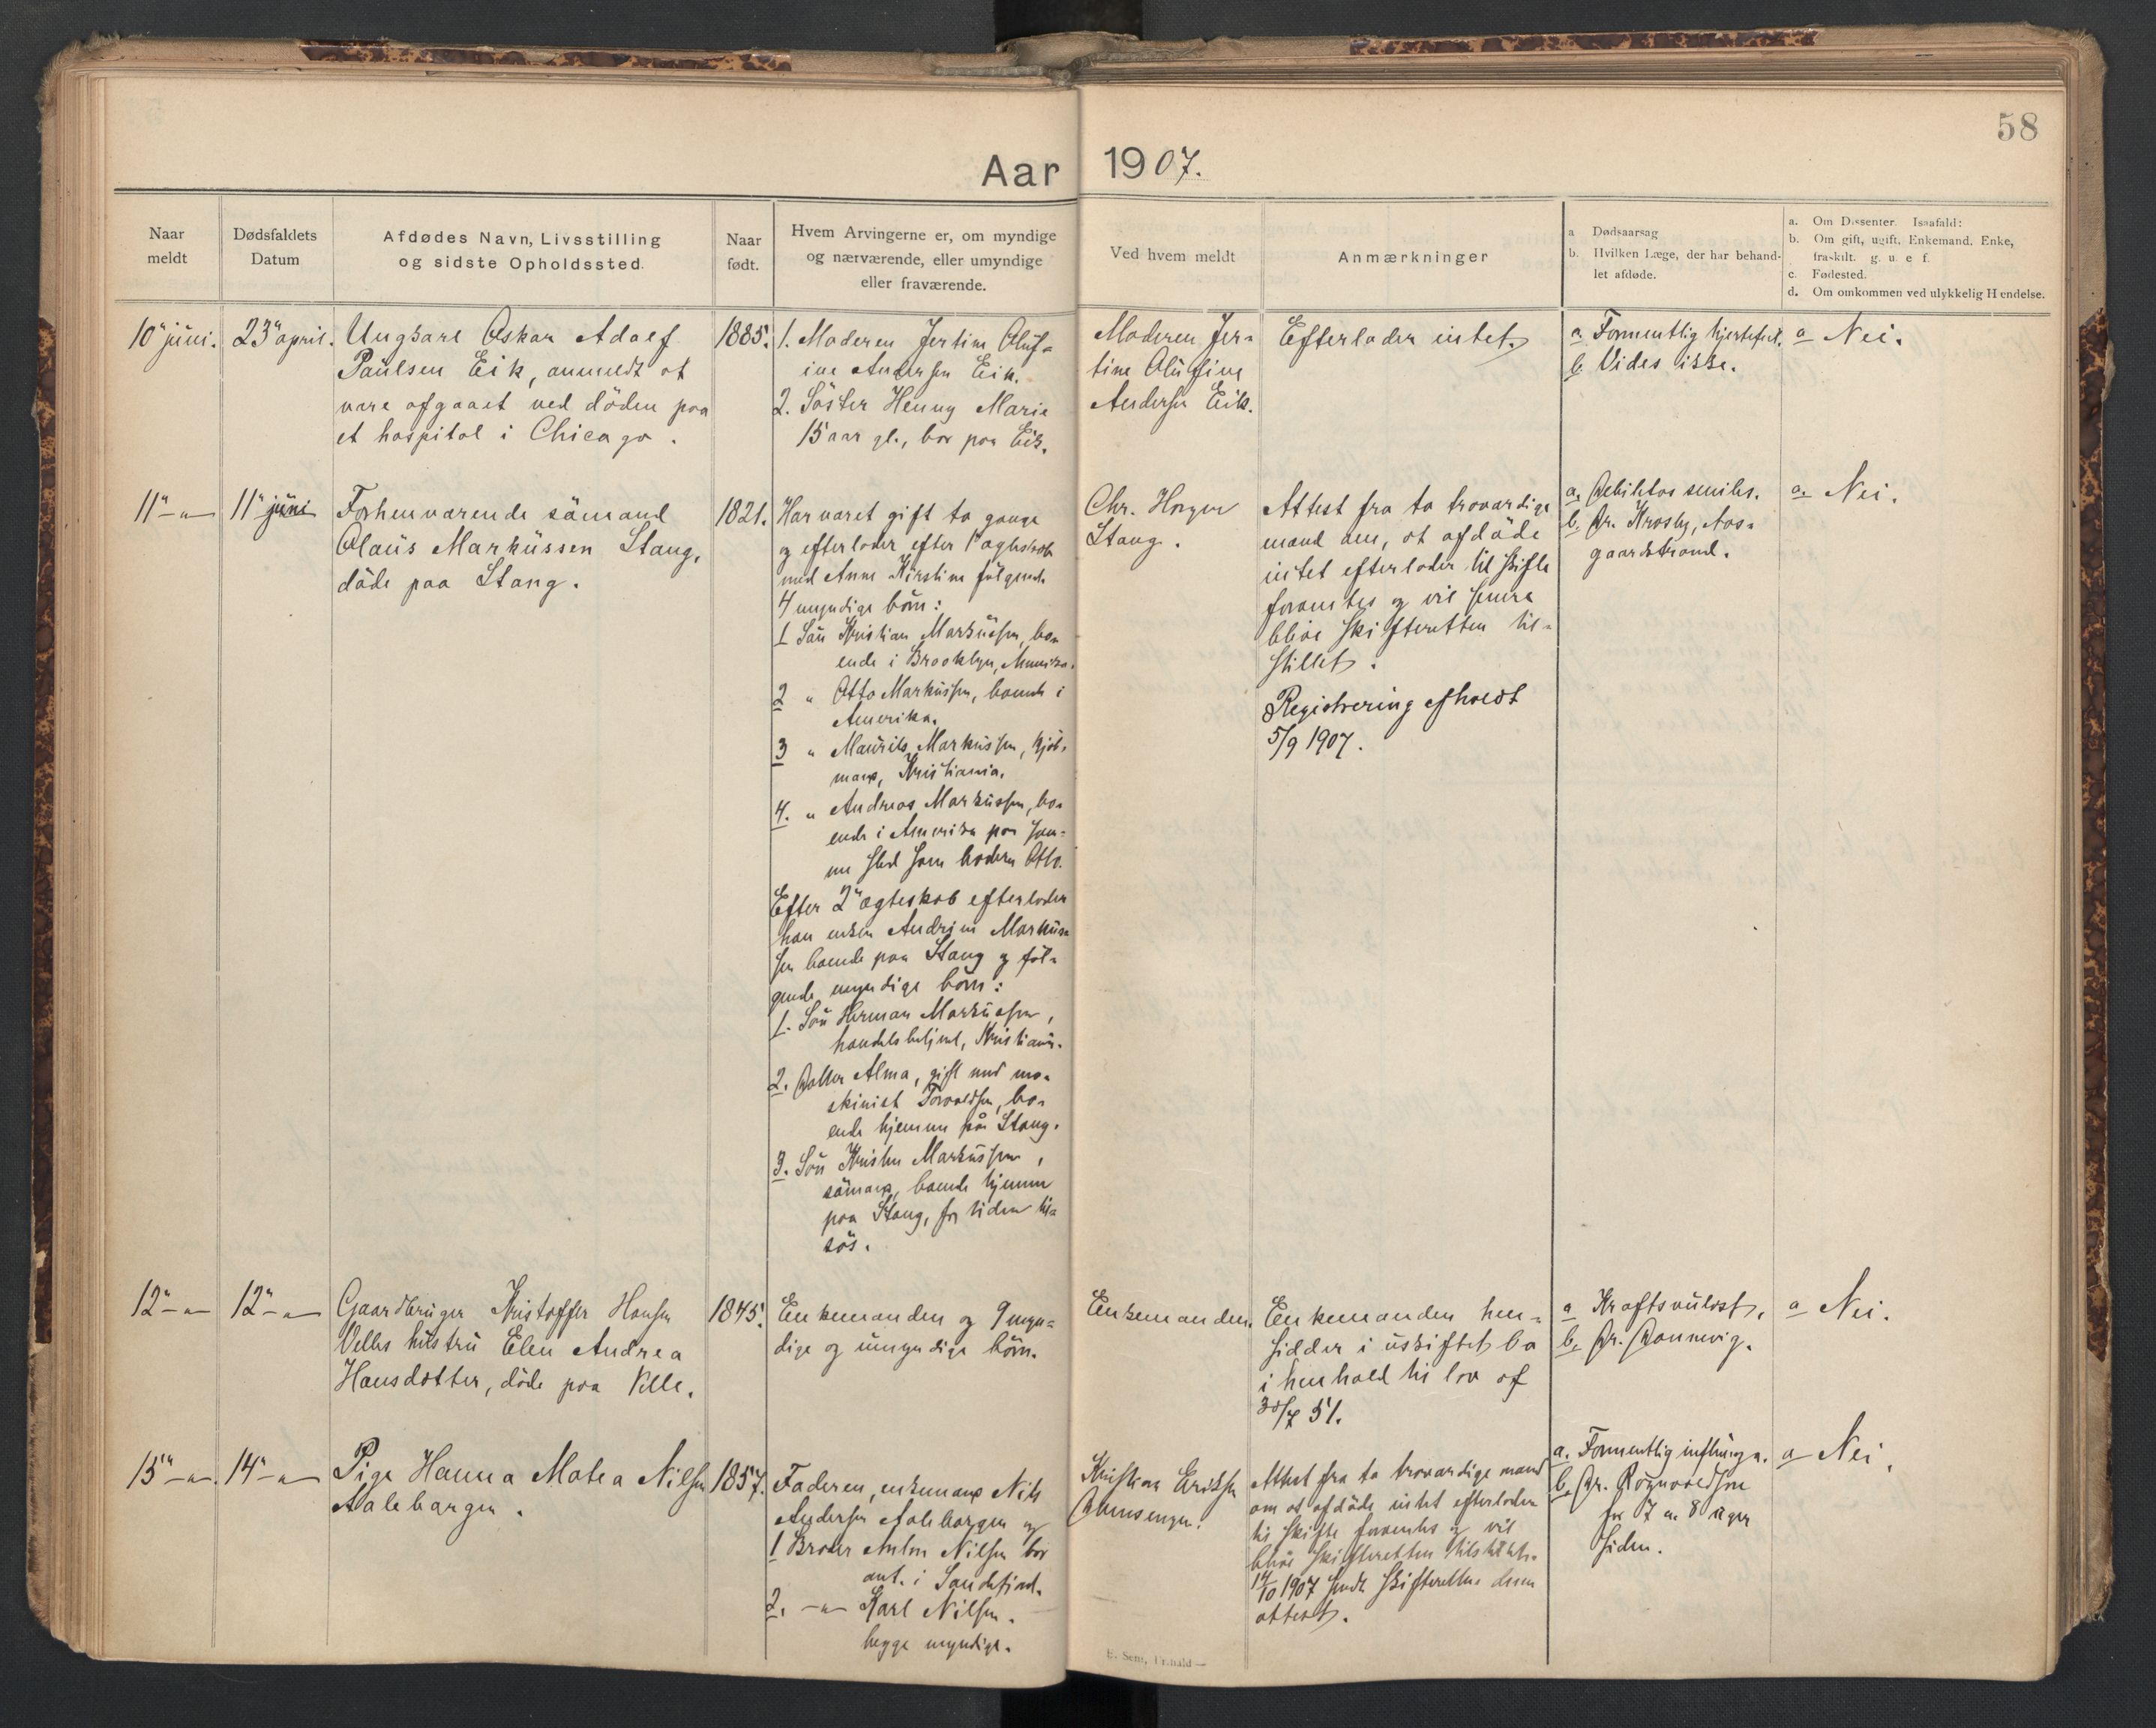 58
Aar 1907.
Naar
meldt
Dødsfaldets
Datum
Afdødes Navn, Livsstilling
og sidste Opholdssted.
Naar
født.
Hvem Arvingerne er, om myndige
og nærværende, eller umyndige
eller fraværende.
Ved hvem meldt
Anmærkninger
a Dødsaarsag
b. Hvilken Læge, der har behand-
let afdøde.
a. Om Dissenter. Isaafald:
b. Om gift, ugift, Enkemand. Enke,
fraskilt. g. u. e f.
c. Fødested.
d. Om omkommen ved ulykkelig Hendelse.
10" juni.
23" april.
Ungkarl Oskar Adolf
Paulsen Eik, anmeldt at
være afgaaet ved döden paa
et hospital i Chicago.
1885.
1. Moderen Jertine Oluf-
ine Andersen Eik.
2. Söster Henny Marie
15 aar gl., bor paa Eik.
Moderen Jer-
tine Olufine
Andersen Eik.
Efterlader intet.
a. Formentlig hjertefeil.
b. Vides ikke.
a Nei.
11" -"-
11" juni
Forhenværende sömand
Olaus Markussen Stang,
döde paa Stang.
1821.
Har været gift to gange
og efterlader efter 1" ægteskab
med Anne Kirstine fölgende
4 myndige börn:
1 Sön Kristian Markussen, bo-
ende i Brooklyn, Amerika.
2 " Otto Markussen, boende i
Amerika.
3 " Maurits Markussen, kjöb-
mand, Kristiania.
4. " Andreas Markussen, bo-
ende i Amerika paa sam-
me sted som broderen Otto.
Efter 2" ægteskab efterlader
han enken Andrine Markus-
sen boende paa Stang og föl-
gende myndige börn:
1. Sön Herman Markussen,
handelsbetjent, Kristiania.
2. Datter Alma, gift med ma-
skinist Torvaldsen, bo-
ende hjemme på Stang.
3. Sön Kristen Markussen,
sömand, boende hjemme
paa Stang, for tiden til-
sös.
Chr. Horgen
Stang.
Attest fra to troværdige
mænd om, at afdöde
intet efterlader til skifte
forventes og vil senere
blive skifteretten til-
stillet.
Registrering afholdt
5/9 1907.
a. Debilitas senilis.
b. Dr. Krosby, Aas-
gaardstrand.
a. Nei.
12" -"-
12" -"-
Gaardbruger Kristoffer Hansen
Velles hustru Elen Andrea
Hansdatter, döde paa Velle.
1845.
Enkemanden og 9 myn-
dige og umyndige börn.
Enkemanden.
Enkemanden hen-
sidder i uskiftet bo
i henhold til lov af
30/7 51.
a Kraftsvulst.
b. Dr. Dannevig.
a Nei.
15" -"-
14" -"-
Pige Hanna Matea Nilsen
Aalebargen.
1857.
Faderen, enkemand Nils
Andersen Aalebargen og
1 Broder Anton Nilsen bor
ant. i Sandefjord.
2. -"- Karl Nilsen.
begge myndige.
Kristian Eriksen
Attest fra to troværdige mænd
om at afdöde intet efterlader
til skifte forventes og vil
blive skifteretten tilstillet.
14/10 1907 sendt skifteretten denne
attest.
a. Formentlig influenza.
b. Dr. Rognvaldson
for 7 a 8 uger
siden.
a Nei.
E. Sem, Fr.hald